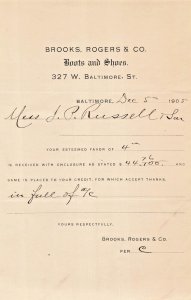 BROOKS, ROGERS & CO.
Boots and Shoes.
327 W. BALTIMORE, ST.
BALTIMORE, Dec 5 1905
Mess J. P. Russell & Son
YOUR ESTEEMED FAVOR OF 4"
IS RECEIVED WITH ENCLOSURE AS STATED $ 44 76/100, AND
SAME IS PLACED TO YOUR CREDIT, FOR WHICH ACCEPT THANKS.
in full of a/c
YOURS RESPECTFULLY,
BROOKS, ROGERS & CO.
PER C